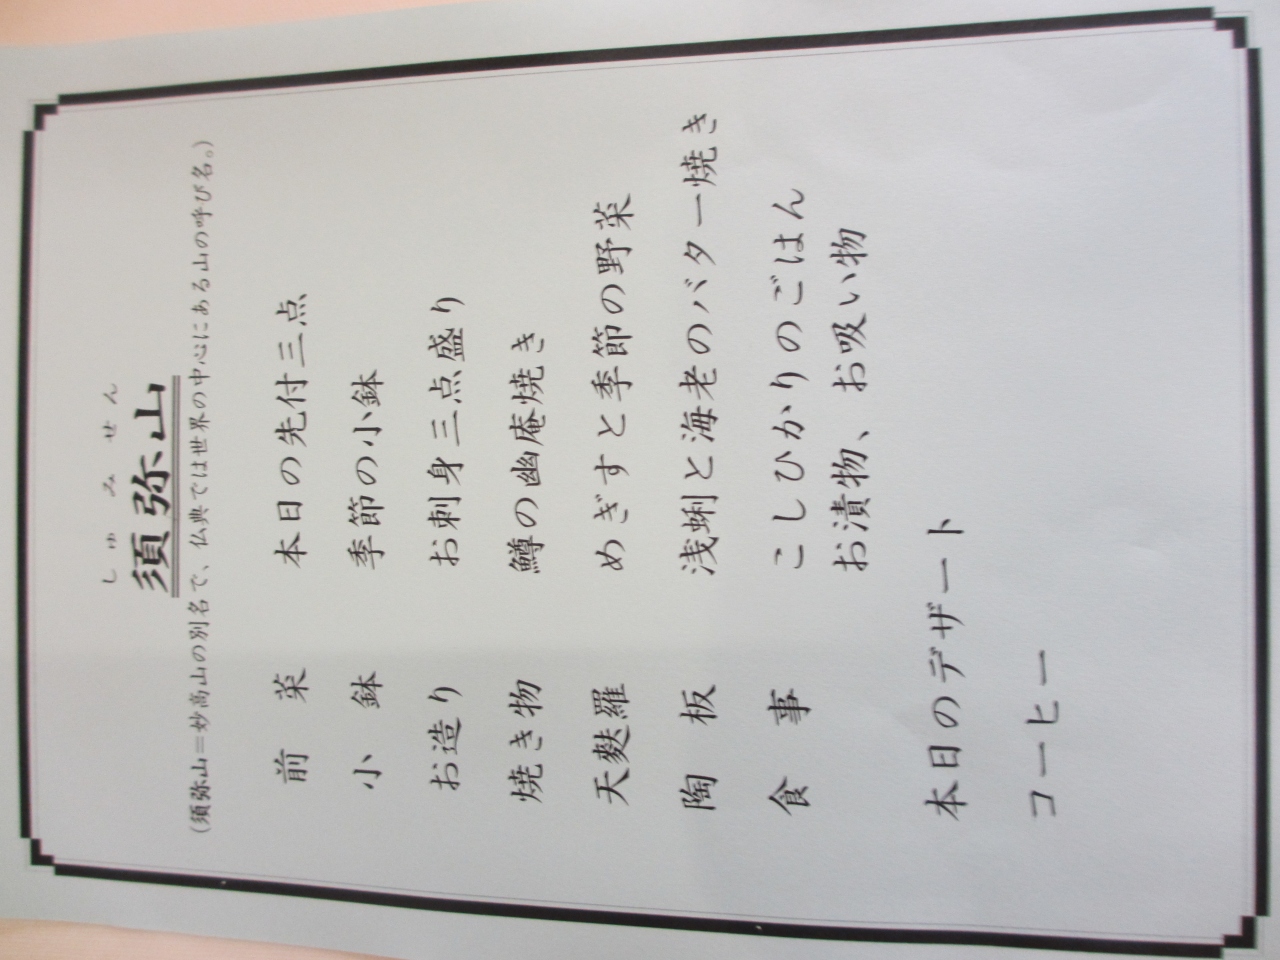 しゅみせん
須弥山
(須弥山＝妙高山の別名で、仏典では世界の中心にある山の呼び名。)
前菜 本日の先付三点
小鉢 季節の小鉢
お造り お刺身三点盛り
焼き物 鱒の幽庵焼き
天麩羅 めぎすと季節の野菜
陶板 浅蜊と海老のバター焼き
食事 こしひかりのごはん
お漬物、お吸い物
本日のデザート
コーヒー